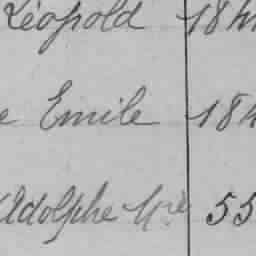 Léopold 184
e Emile 184
Adolphe 55